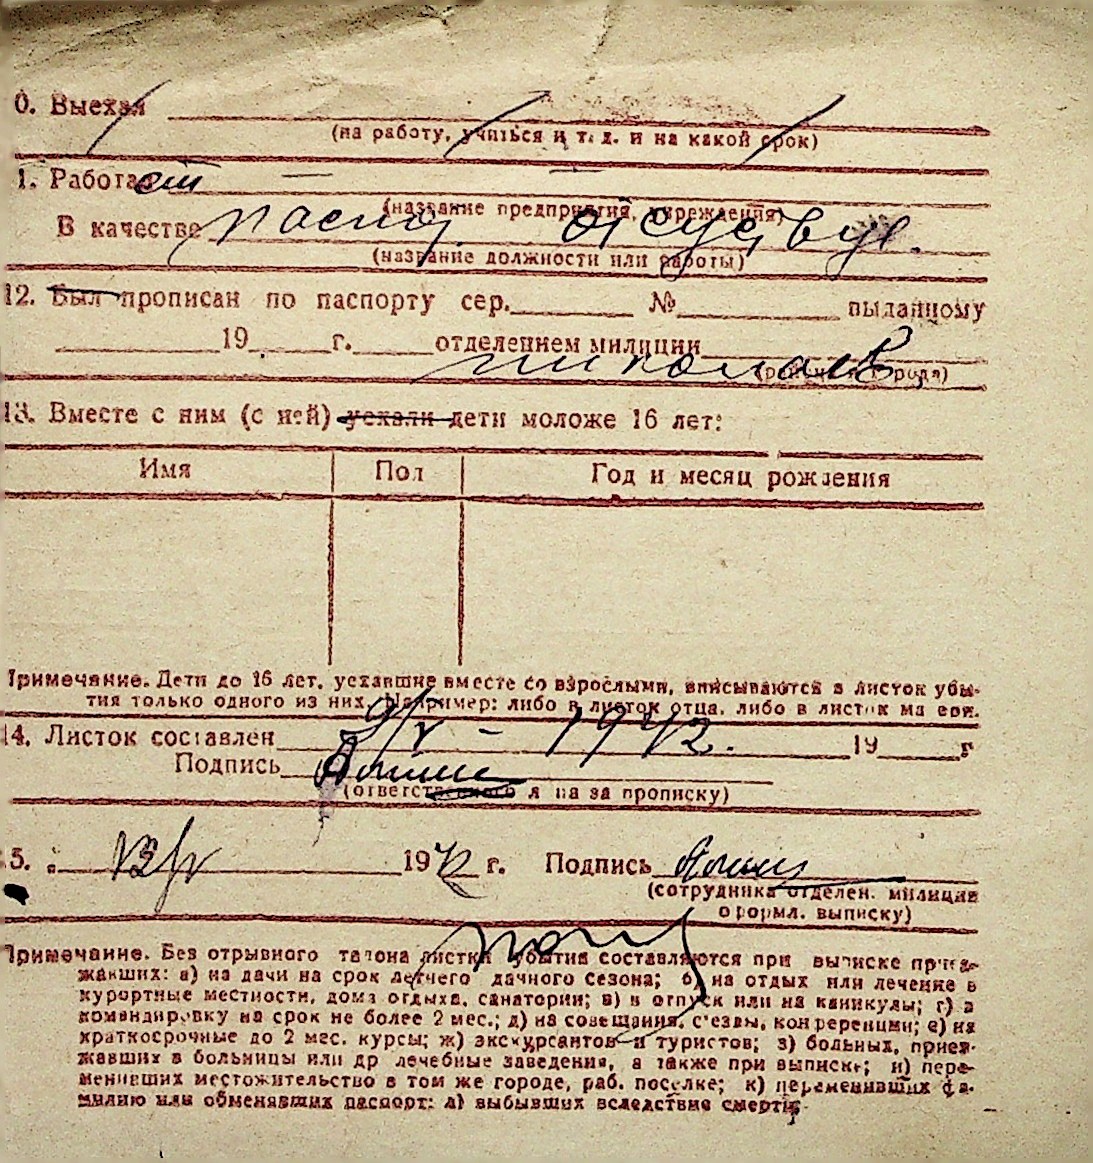 0. Выехал
(на работу, учиться и т. д. и на какой срок)
1. Работает
(название предприятия, учреждения)
В качестве
(название должности или работы)
12. Был прописан по паспорту сер. № выданному
19 г. отделением милиции
(район, города)
13. Вместе с ним (с ней) уехали дети моложе 16 лет:
Имя Пол Год и месяц рождения
Примечание. Дети до 16 лет, уехавшие вместе со взрослыми, вписываются в листок убы-
тия только одного из них. Например: либо в листок отца, либо в листок матери.
14. Листок составлен 9/V - 1942. 19 г
Подпись
(ответственного за прописку)
5. " 13/V 1942 г. Подпись
(сотрудника отделен. милиции
оформл. выписку)
Примечание. Без отрывного талона листки убытия составляются при выписке приез-
жавших: а) на дачи на срок летнего дачного сезона; б) на отдых или лечение в
курортные местности, дома отдыха, санатории; в) в отпуск или на каникулы; г) в
командировку на срок не более 2 мес.; д) на совещания, с'езды, конференции; е) на
краткосрочные до 2 мес. курсы; ж) экскурсантов и туристов; з) больных, приез-
жавших в больницы или др лечебные заведения, а также при выписке; и) пере-
менивших местожительство в том же городе, раб. поселке; к) переменивших фа-
милию или обменявших паспорт; л) выбывших вследствие смерти.